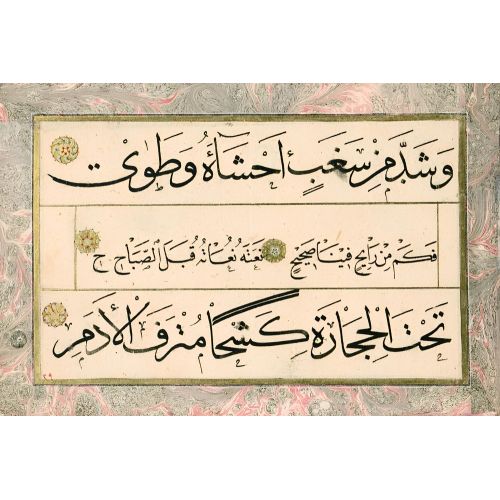 وَشَدَّ مِنْ سَغَبٍ أَحْشَاءَهُ وَطَوٰى
فَكَمْ مِنْ رَايِحٍ فِينَا صَحِيحٍ نَعَتْهُ نُعَاتُهُ قُبَلَ الصَّبَاحِ ح
تَحْتَ الْحِجَارَةِ كَشْحًا مُتْرَفَ الْأَدَمِ